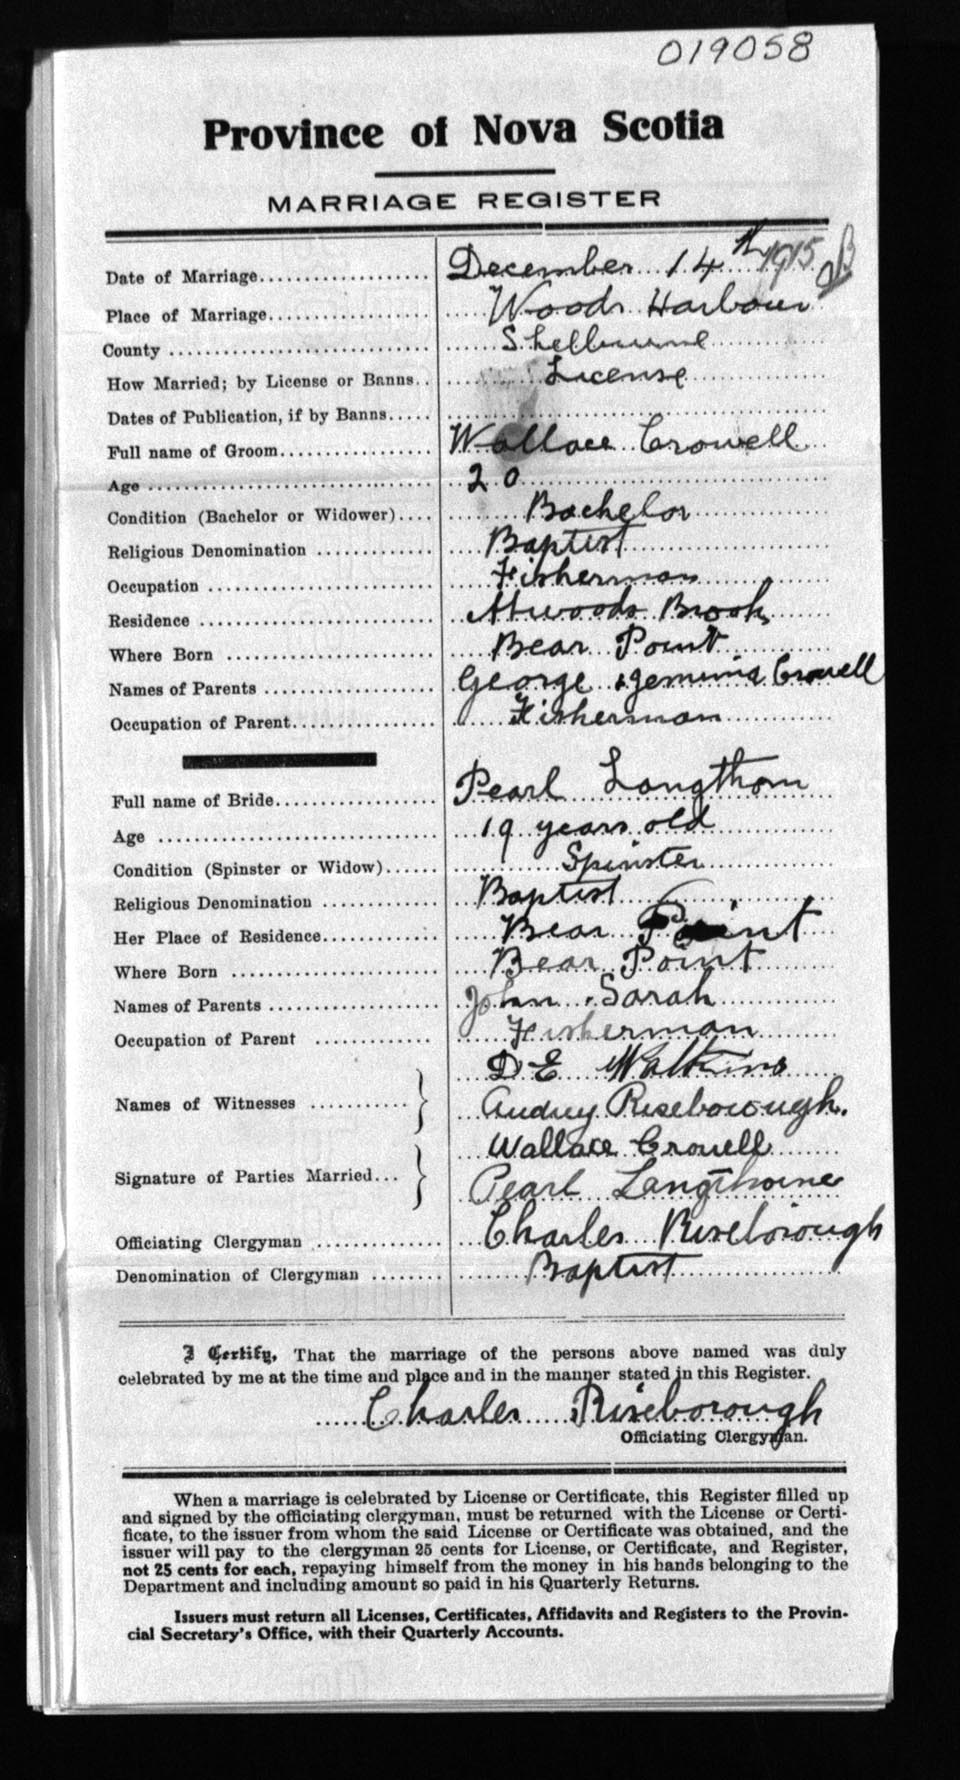 019058
Province of Nova Scotia
MARRIAGE REGISTER
Date of Marriage.................. December 14th 1915
Place of Marriage................. Woods Harbour
County ............................ Shelburne
How Married; by License or Banns.. License
Dates of Publication, if by Banns.....
Full name of Groom................ Wallace Crowell
Age ............................... 20
Condition (Bachelor or Widower).... Bachelor
Religious Denomination ............ Baptist
Occupation ........................ Fisherman
Residence ......................... Atwoods Brook
Where Born ........................ Bear Point
Names of Parents .................. George & Jemima Crowell
Occupation of Parent............... Fisherman
Full name of Bride................. Pearl Langthorn
Age ............................... 19 years old
Condition (Spinster or Widow)...... Spinster
Religious Denomination ............ Baptist
Her Place of Residence............. Bear Point
Where Born ........................ Bear Point
Names of Parents .................. John Sarah
Occupation of Parent .............. Fisherman
D E Watkins
Names of Witnesses ........... } Audrey Riseborough.
Wallace Crowell
Signature of Parties Married... } Pearl Langthorne
Officiating Clergyman ............. Charles Riseborough
Denomination of Clergyman ........ Baptist
I Certify, That the marriage of the persons above named was duly
celebrated by me at the time and place and in the manner stated in this Register.
Charles Riseborough
Officiating Clergyman.
When a marriage is celebrated by License or Certificate, this Register filled up
and signed by the officiating clergyman, must be returned with the License or Certi-
ficate, to the issuer from whom the said License or Certificate was obtained, and the
issuer will pay to the clergyman 25 cents for License, or Certificate, and Register,
not 25 cents for each, repaying himself from the money in his hands belonging to the
Department and including amount so paid in his Quarterly Returns.
Issuers must return all Licenses, Certificates, Affidavits and Registers to the Provin-
cial Secretary's Office, with their Quarterly Accounts.